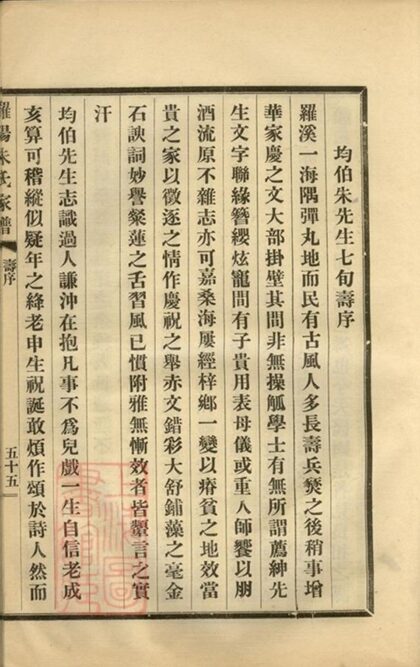 均伯朱先生七旬壽序
羅溪一海隅彈丸地而民有古風人多長壽兵燹之後稍事增
華家慶之文大部掛壁其間非無操觚學士有無所謂薦紳先
生文字聯緣簪纓炫寵間有子貴用表母儀或重人師饗以朋
酒流原不雜志亦可嘉桑海屢經梓鄉一變以瘠貧之地效當
貴之家以徵逐之情作慶祝之舉赤文錯彩大舒鋪藻之毫金
石諛詞妙譽粲蓮之舌習風已慣附雅無慚效者皆顰言之實
汗
均伯先生志識過人謙沖在抱凡事不爲兒戲一生自信老成
亥算可稽縱似疑年之絳老申生祝誕敢煩作頌於詩人然而
羅陽朱氏家譜 壽序 五十五